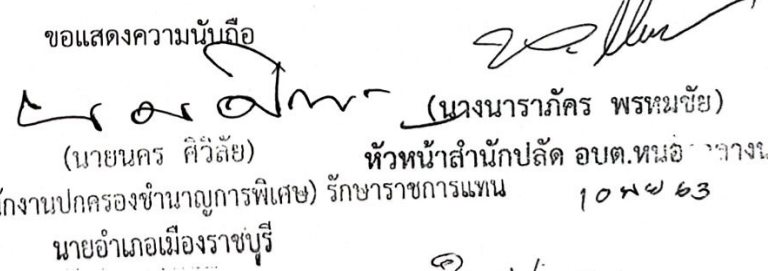 ขอแสดงความนับถือ
(นายนคร ศิวิลัย)
(นางนาราภัคร พรหมชัย)
หัวหน้าสำนักปลัด อบต.
งานปกครองชำนาญการพิเศษ) รักษาราชการแทน
10 พย 63
นายอำเภอเมืองราชบุรี